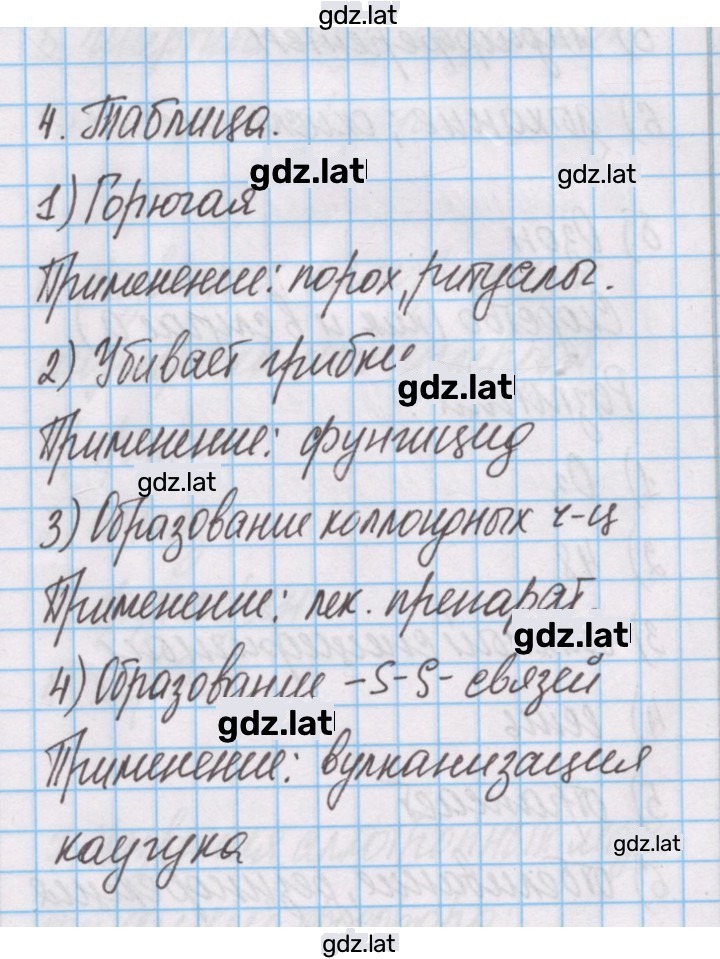 gdz.lat
4. Таблица.
gdz.lat gdz.lat
1) Горючая
Применение: порох, ритуалы.
2) Убивает грибки
gdz.lat
Применение: фунгицид
gdz.lat
3) Образование коллоидных ч-ц
Применение: лек. препарат.
gdz.lat
4) Образование -S-S- связей
gdz.lat
Применение: вулканизация
каучука
gdz.lat
gdz.lat